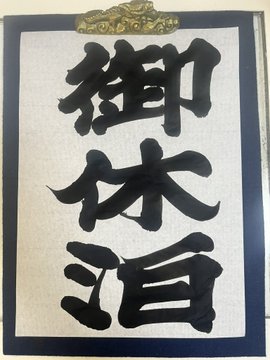 御休泊